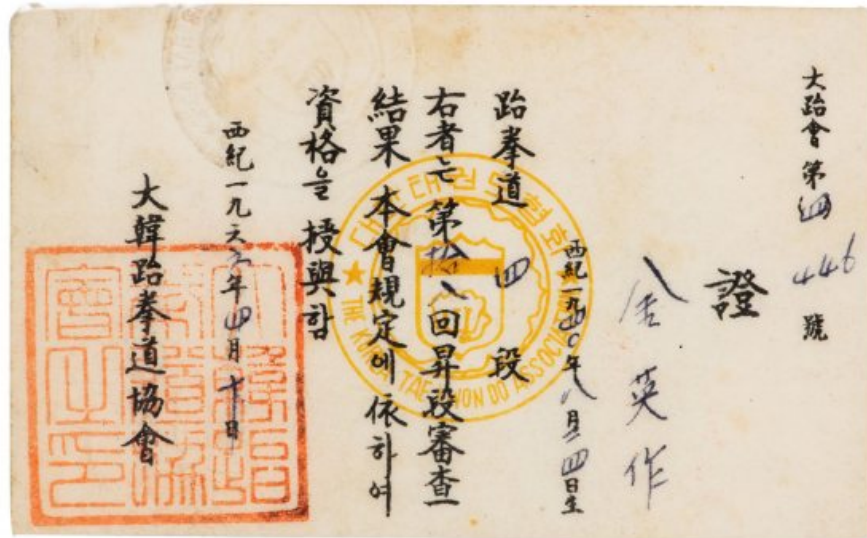 大跆會 第四 446 號
證
金英作
西紀一九四〇年八月四日生
跆拳道 四 段
右者는 第拾八回昇段審査
結果 本會規定에 依하여
資格을 授與함
西紀一九六 年四月十日
大韓跆拳道協會
대한태권도협회
THE KOREA TAEKWON DO ASSOCIATION
大韓跆拳道協會之印